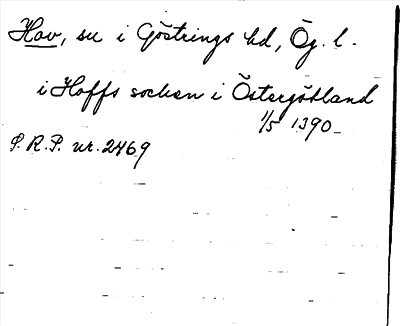 Hov, su i Göstrings hd, Ög. l.
i Hoffs socken i Östergötland
1/5 1390
S.R.P. nr. 2469